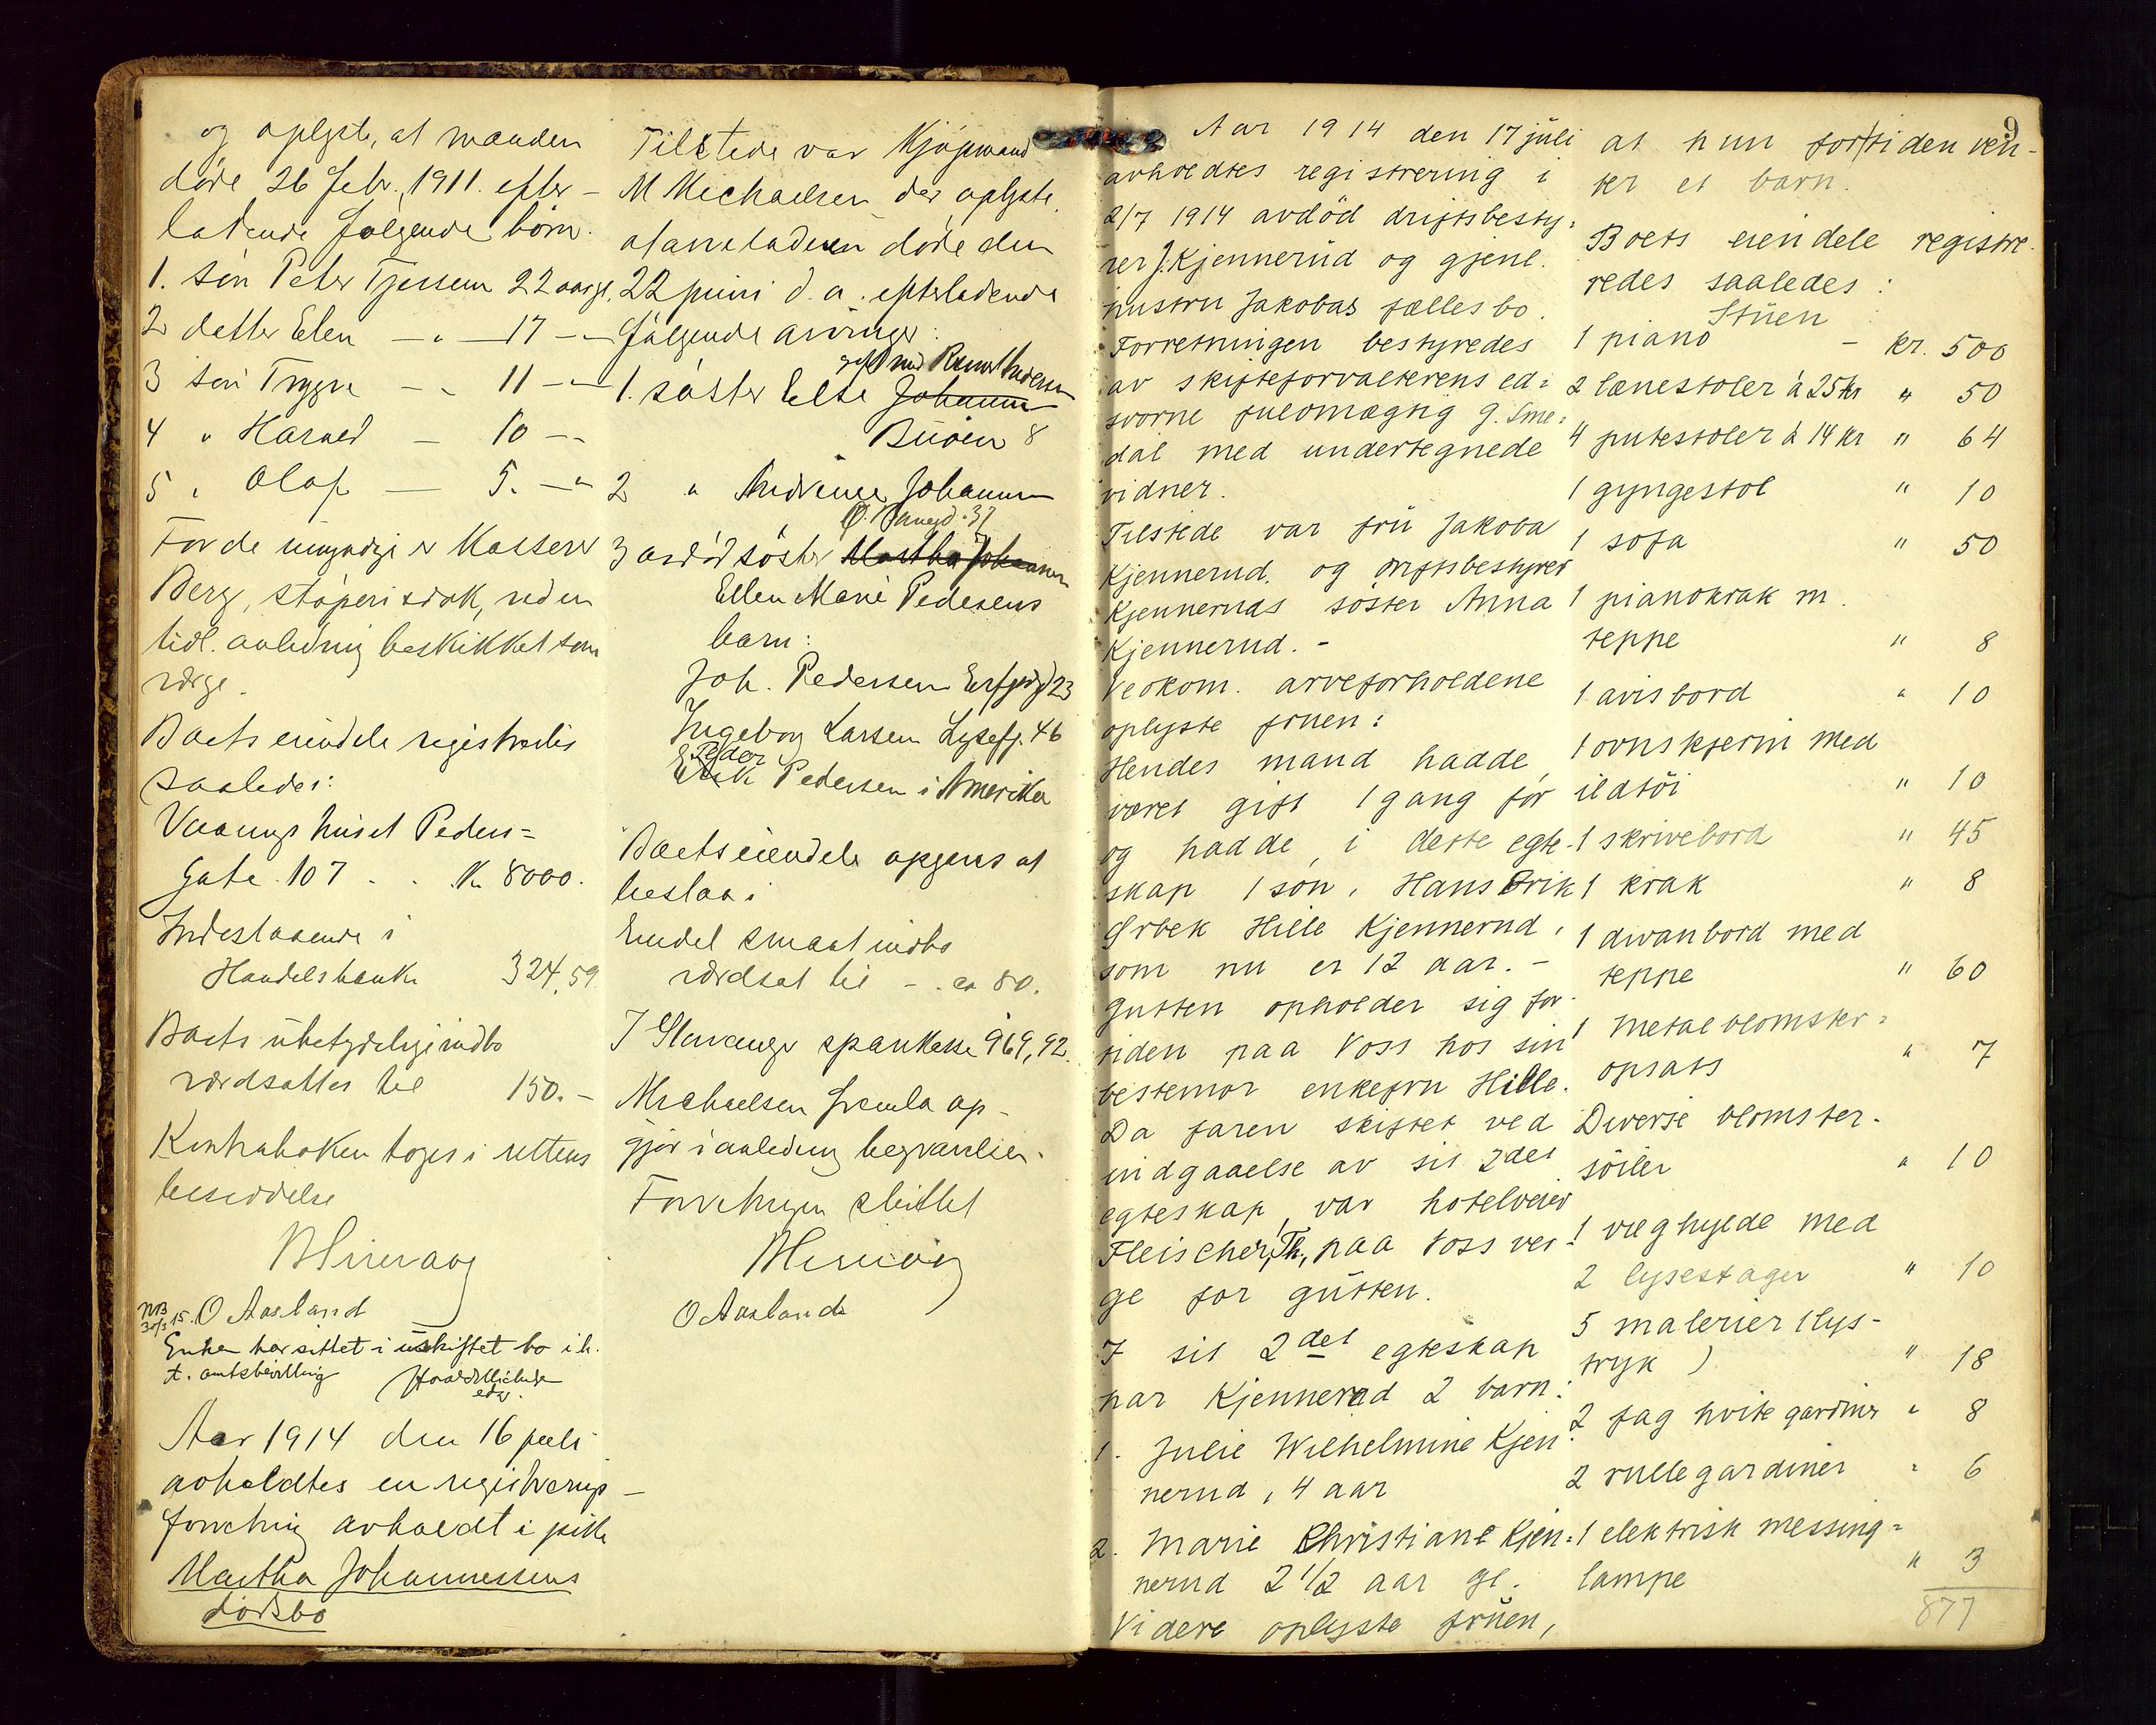 og oplyste, at manden
døde 26 Febr. 1911. efter-
ladende følgende børn.
1. søn Peter Tjessem 22 aar gl.
2 datter Elen — " — 17 — "
3 søn Trygve — " 11 — "
4 " Harald — 10 — "
5 " Olaf — 5. — "
For de umyndige er Kasserer
Berg, støperi    , ved en
tidl. anledning beskikket som
værge.
Boets eiendele registredes
saaledes:
Vaaningshuset Peders=
Gate 107 . . Kr 8000.
Indestaaende i
Handelsbank 324,59
Boets ubetydelige indbo
værdsattes til 150.-
Kontraboken toges i rettens
besiddelse

O Aasland
NB 30/3 15.
Enken har sittet i uskiftet bo ih.
t. amtsbevilling

Aar 1914 den 16 juli
avholdtes en registrerings-
forretning avholdt i    
Martha Johannessens
dødsbo
Tilstede var Kjøpmand
M Michaelsen der oplyste,
at arveladeren døde den
22 juni d.a. efterladende
følgende arvinger:
gift med    Andersen
1. søster Else Johannes
Buøen 8
2 " Andrine Johannes
Ø.    37
3 avdød søster Martha Johannes
Ellen Marie Pedersens
barn:
Joh. Pedersen    23
Ingeborg Larsen Lysefj. 46
Peder
Erik Pedersen i Amerika
Boets eiendele opgives at
bestaa i
Endel smaat indbo
værdsat til - . ca 80.
I Stavanger sparekasse 969,92.
Michaelsen fremla op-
gjør i anledning begravelsen.
Forretningen sluttet

O Aasland
9
Aar 1914 den 17 juli
avholdtes registrering i
2/7 1914 avdöd driftsbesty=
rer J. Kjennerud og gjenl.
hustru Jakobas fællesbo.
Forretningen bestyredes
av skifteforvalterens ed=
svorne fuldmægtig G. Sme=
dal med undertegnede
vidner.
Tilstede var frü Jakoba
Kjennerud. og driftsbestyrer
Kjenneruds söster Anna
Kjennerud. -
Vedkom. arveforholdene
oplyste fruen:
Hendes mand hadde
været gift 1 gang för
og hadde, i dette egte-
skap 1 sön, Hans Erik
Ørbek Hille Kjennerud,
som nu er 12 aar. -
Gutten opholder sig for-
tiden paa Voss hos sin
bestemor enkefru Hille.
Da faren skiftet ved
indgaaelse av sit 2det
egteskap, var hoteleier
Fleischer, Th, paa Voss ver-
ge for gütten.
I sit 2det egteskap
har Kjennerud 2 barn:
1. Julie Wilhelmine Kjen=
nerud, 4 aar
2. Marie Christiane Kjen=
nerud 2 1/2 aar gl.
Videre oplyste früen,
at hun for tiden ven-
ter et barn.
Boets eiendele registre-
redes saaledes:
Stüen
1 piano - kr. 500
2 lænestoler à 25 kr " 50
4 putestoler à 14 kr " 64
1 gyngestol " 10
1 sofa " 50
1 pianokrak m.
teppe " 8
1 avisbord " 10
1 ovnskjerm med
ildtöi " 10
1 skrivebord " 45
1 krak " 8
1 divanbord med
teppe " 60
1 metalblomster=
opsats " 7
Diverse blomster-
söiler " 10
1 væghylde med
2 lysestager " 10
5 malerier (lys-
tryk ) " 18
2 fag hvite gardiner " 8
2 rullegardiner " 6
1 elektrisk messing=
lampe " 3
877